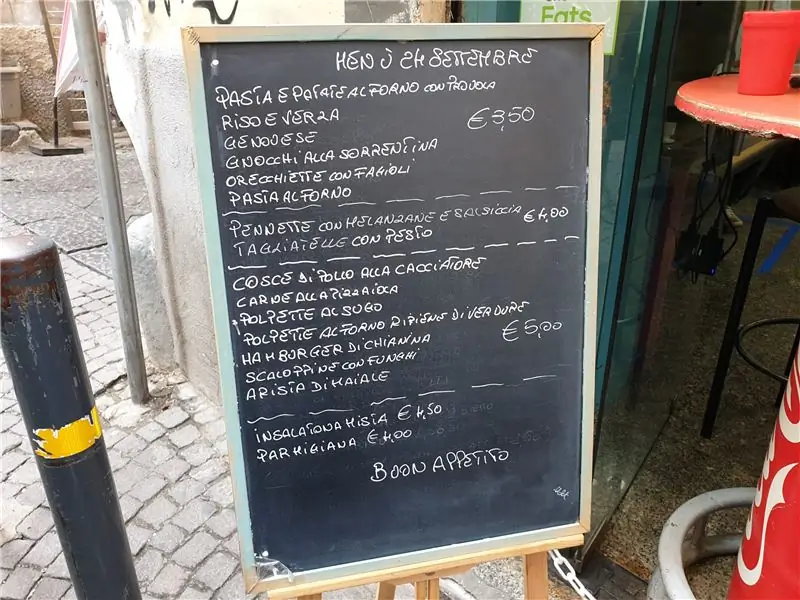 Eats
MENÙ 24 SETTEMBRE
PASTA E PATATE AL FORNO CON PROVOLA
RISO E VERZA
€ 3,50
GENOVESE
GNOCCHI ALLA SORRENTINA
ORECCHIETTE CON FAGIOLI
PASTA AL FORNO
PENNETTE CON MELANZANE E SALSICCIA € 4,00
TAGLIATELLE CON PESTO
COSCE DI POLLO ALLA CACCIATORE
CARNE ALLA PIZZAIOLA
POLPETTE AL SUGO
POLPETTE AL FORNO RIPIENE DI VERDURE
HAMBURGER DI CHIANINA
€ 5,00
SCALOPPINE CON FUNGHI
ARISTA DI MAIALE
INSALATONA MISTA € 4,50
PARMIGIANA € 4,00
BUON APPETITO